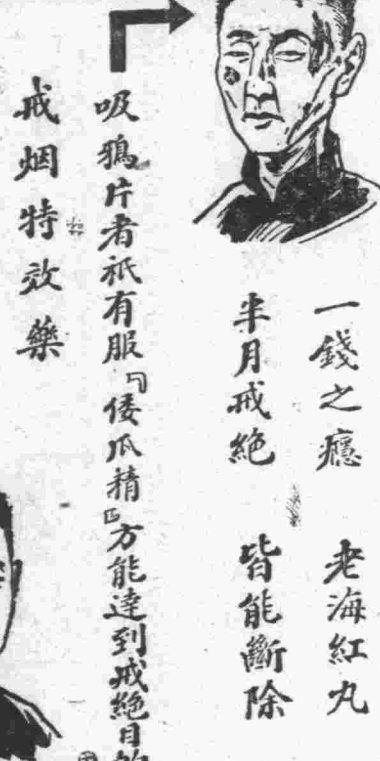 一錢之癮 老海紅丸
半月戒絕 皆能斷除
吸鴉片者祇有服『倭瓜精』方能達到戒絕目的
戒烟特效藥